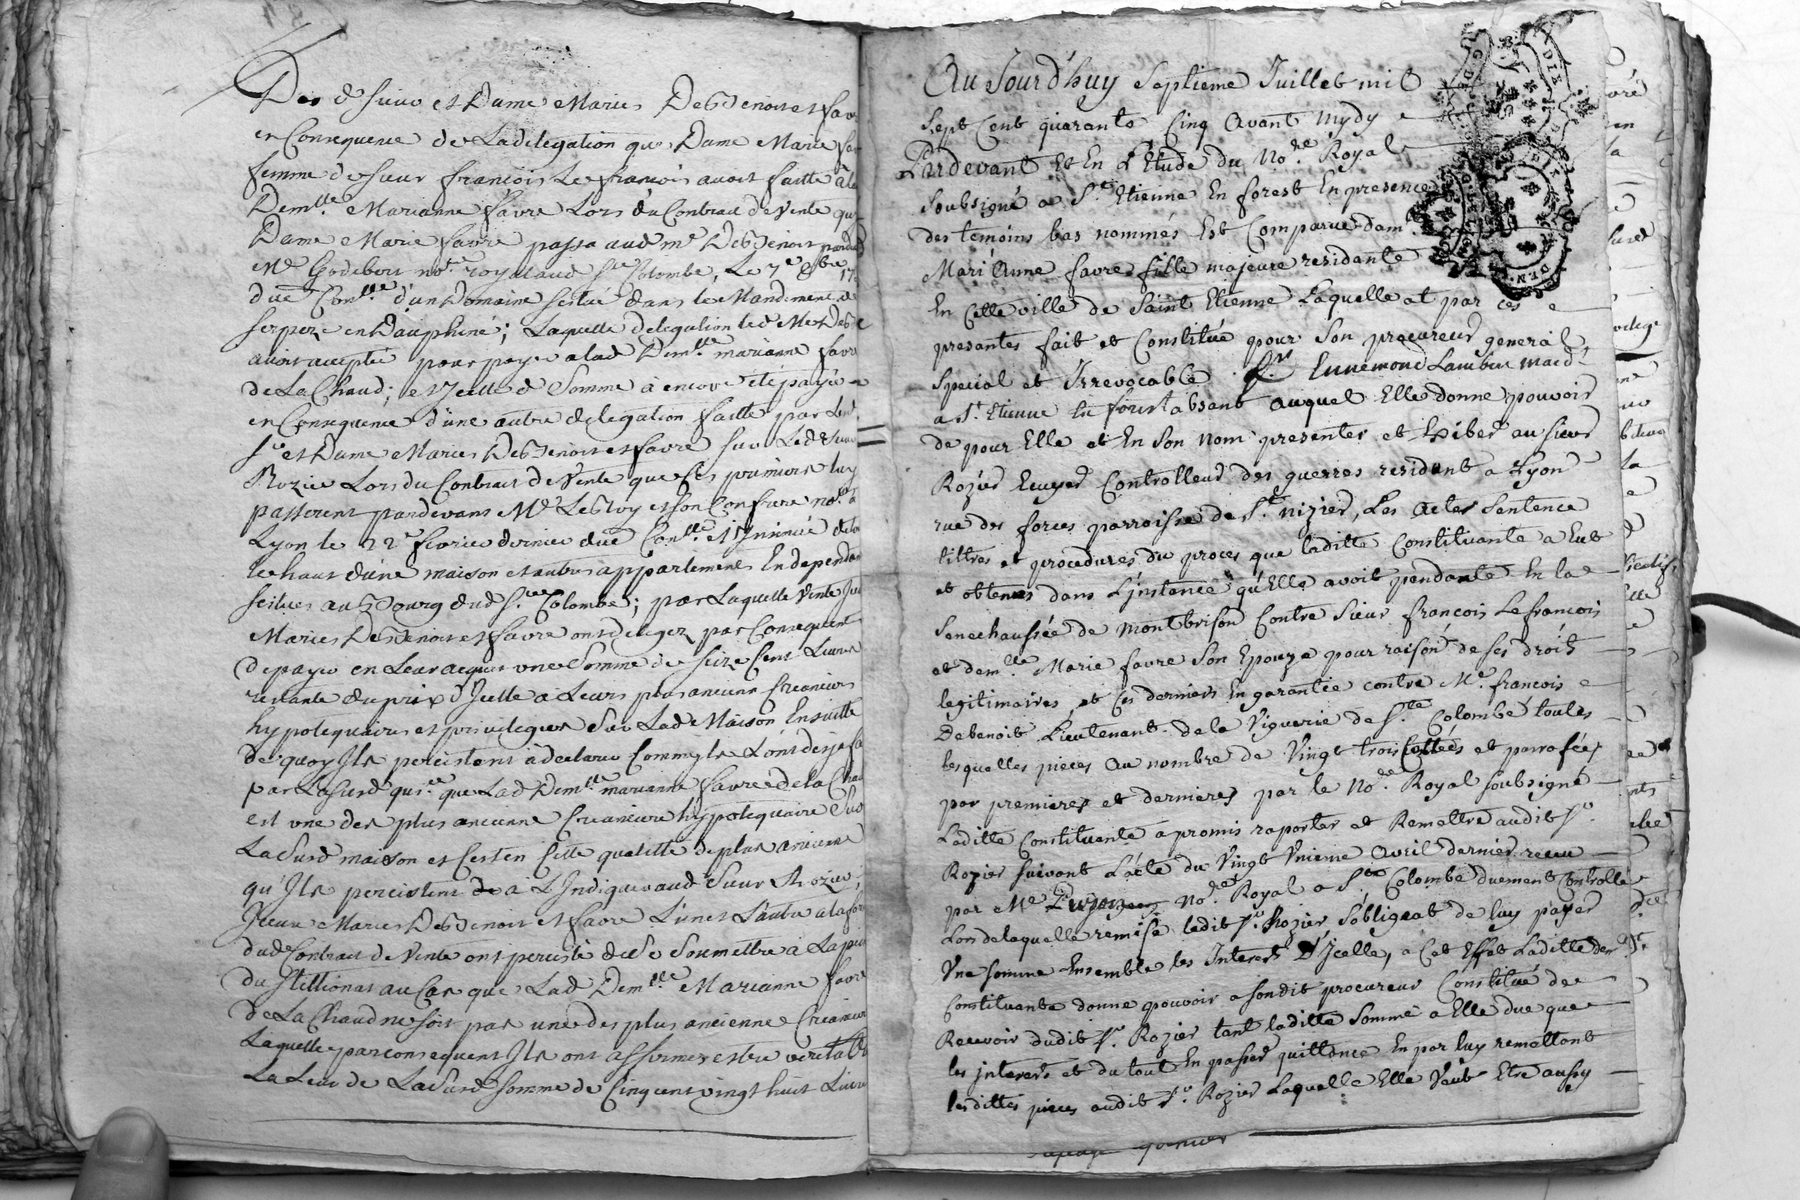 Des d. sieur et Dame Maries DeBenoit et favre
en Consequence de La delegation que Dame Marie
femme de sieur francois Le francois avoit faitte à la
Dem.lle Marianne favre Lors du Contract de Vente que
Dame Marie favre passa aud. me DeBenoit pardt
Me Godebert no.re royal aud. Ste Colombe, Le 7e 8bre 17
due Con.lle d'un Domaine scitué dans le Mandement de
serpeze en Dauphiné; Laquelle delegation led. Me DeB
avoit accepté pour payer a lad. Dem.lle marianne favre
de La Chaud; et Icelle d. Somme à encore été payée
en Consequence d'une autre delegation faitte par Lesd.
Sr et Dame Maries DeBenoit et favre sur Led. Sieur
Rozier Lors du Contract de Vente que ses premiers luy
passerent pardevant Me LeGroy et son Confrere no.res à
Lyon le 22e fevrier dernier due Con.lle et Insinué de tout
le haut d'une maison et autres appartements En dependant
scitues au Bourg dud. Ste Colombe; par Laquelle Vente Iceux
Maries DeBenoit et favre ont deleguez par Consequent
de payer en Leur acquit une Somme de seize Cent Livres
restante du prix d'Icelle a Leurs plus ancienn Creanciers
hypotequaires et privilegies Sur Lad. Maison Ensuitte
de quoy Ils percistent à declarer Comme Ils L'ont desja fa
par La susd. quis.ce que Lad. Dem.lle marianne favre de la Chau
est une des plus ancienne Creanciere hypotequaire Sur
La Susd. maison et C'est en Cette qualitté de plus ancienne
qu'Ils percistent de à L'Indiquer aud. Sieur Rozier,
Iceux Maries DeBenoit et favre L'un et L'autre a la for
dud. Contract de Vente ont percisté de Se Soumettre à La pei
du Stellionat au Cas que Lad. Dem.lle Marianne favre
de La Chaud ne soit pas une des plus ancienne Creanciere
Laquelle par consequent Ils ont affirmer estre veritable
La Leur de La Susd. somme de Cinq cent vingt huit Livres
Au Jourd'huy Septieme Juillet mil
Sept Cent quarante Cinq avant Mydy
Pardevant Et En L'Etude du No.re Royal
Soubsigné a St Etienne En forest En presence
des temoins bas nommés Est Comparue dam.lle
Mari'Anne favre fille majeure residante
En Cette ville de Saint Etienne Laquelle at par ces
presantes fait et Constitué pour Son procureur general,
Special et Irrevocable Sr Ennemond Lambin mard.
a St Etienne En forest absant auquel Elle donne pouvoir
de pour Elle et En Son nom presenter et Exiber au sieur
Rozier Ecuyer Controlleur des guerres resident a Lyon
rue des forces parroisse de St nizier, Les actes Sentence
tittres et procedures du proces que laditte Constituante a Eut
et obtenues dans L'Instance qu'Elle avoit pendante En la
Senechaussée de Montbrison Contre Sieur francois Lefrancois
et dem.lle Marie favre Son Epouze pour raison de ses droits
legitimaires, et Ces derniers En garantie contre Me francois
Debenoit Lieutenant de la Viguerie de Ste Colombe toutes
lesquelles pieces au nombre de Vingt trois Cottées et parrafées
par premieres et dernieres par le No.re Royal soubsigné
Laditte Constituante a promis raporter et Remettre audit Sr
Rozier Suivant L'acte du Vingt Unieme Avril dernier receu
par Me No.re Royal a Ste Colombe duement Controllé
Lors de laquelle remise ledit Sr Rozier s'obligeat de luy payer
Une somme Ensemble les Interest D'Icelle, a Cet Effet Laditte dem.lle
Constituante donne pouvoir a sondit procureur Constitué de
Recevoir dudit Sr Rozier tant laditte Somme a Elle due que
les interests et du tout En passer quittance En par luy remettant
lesdittes pieces audit Sr Rozier Laquelle Elle Veut Etre aussy